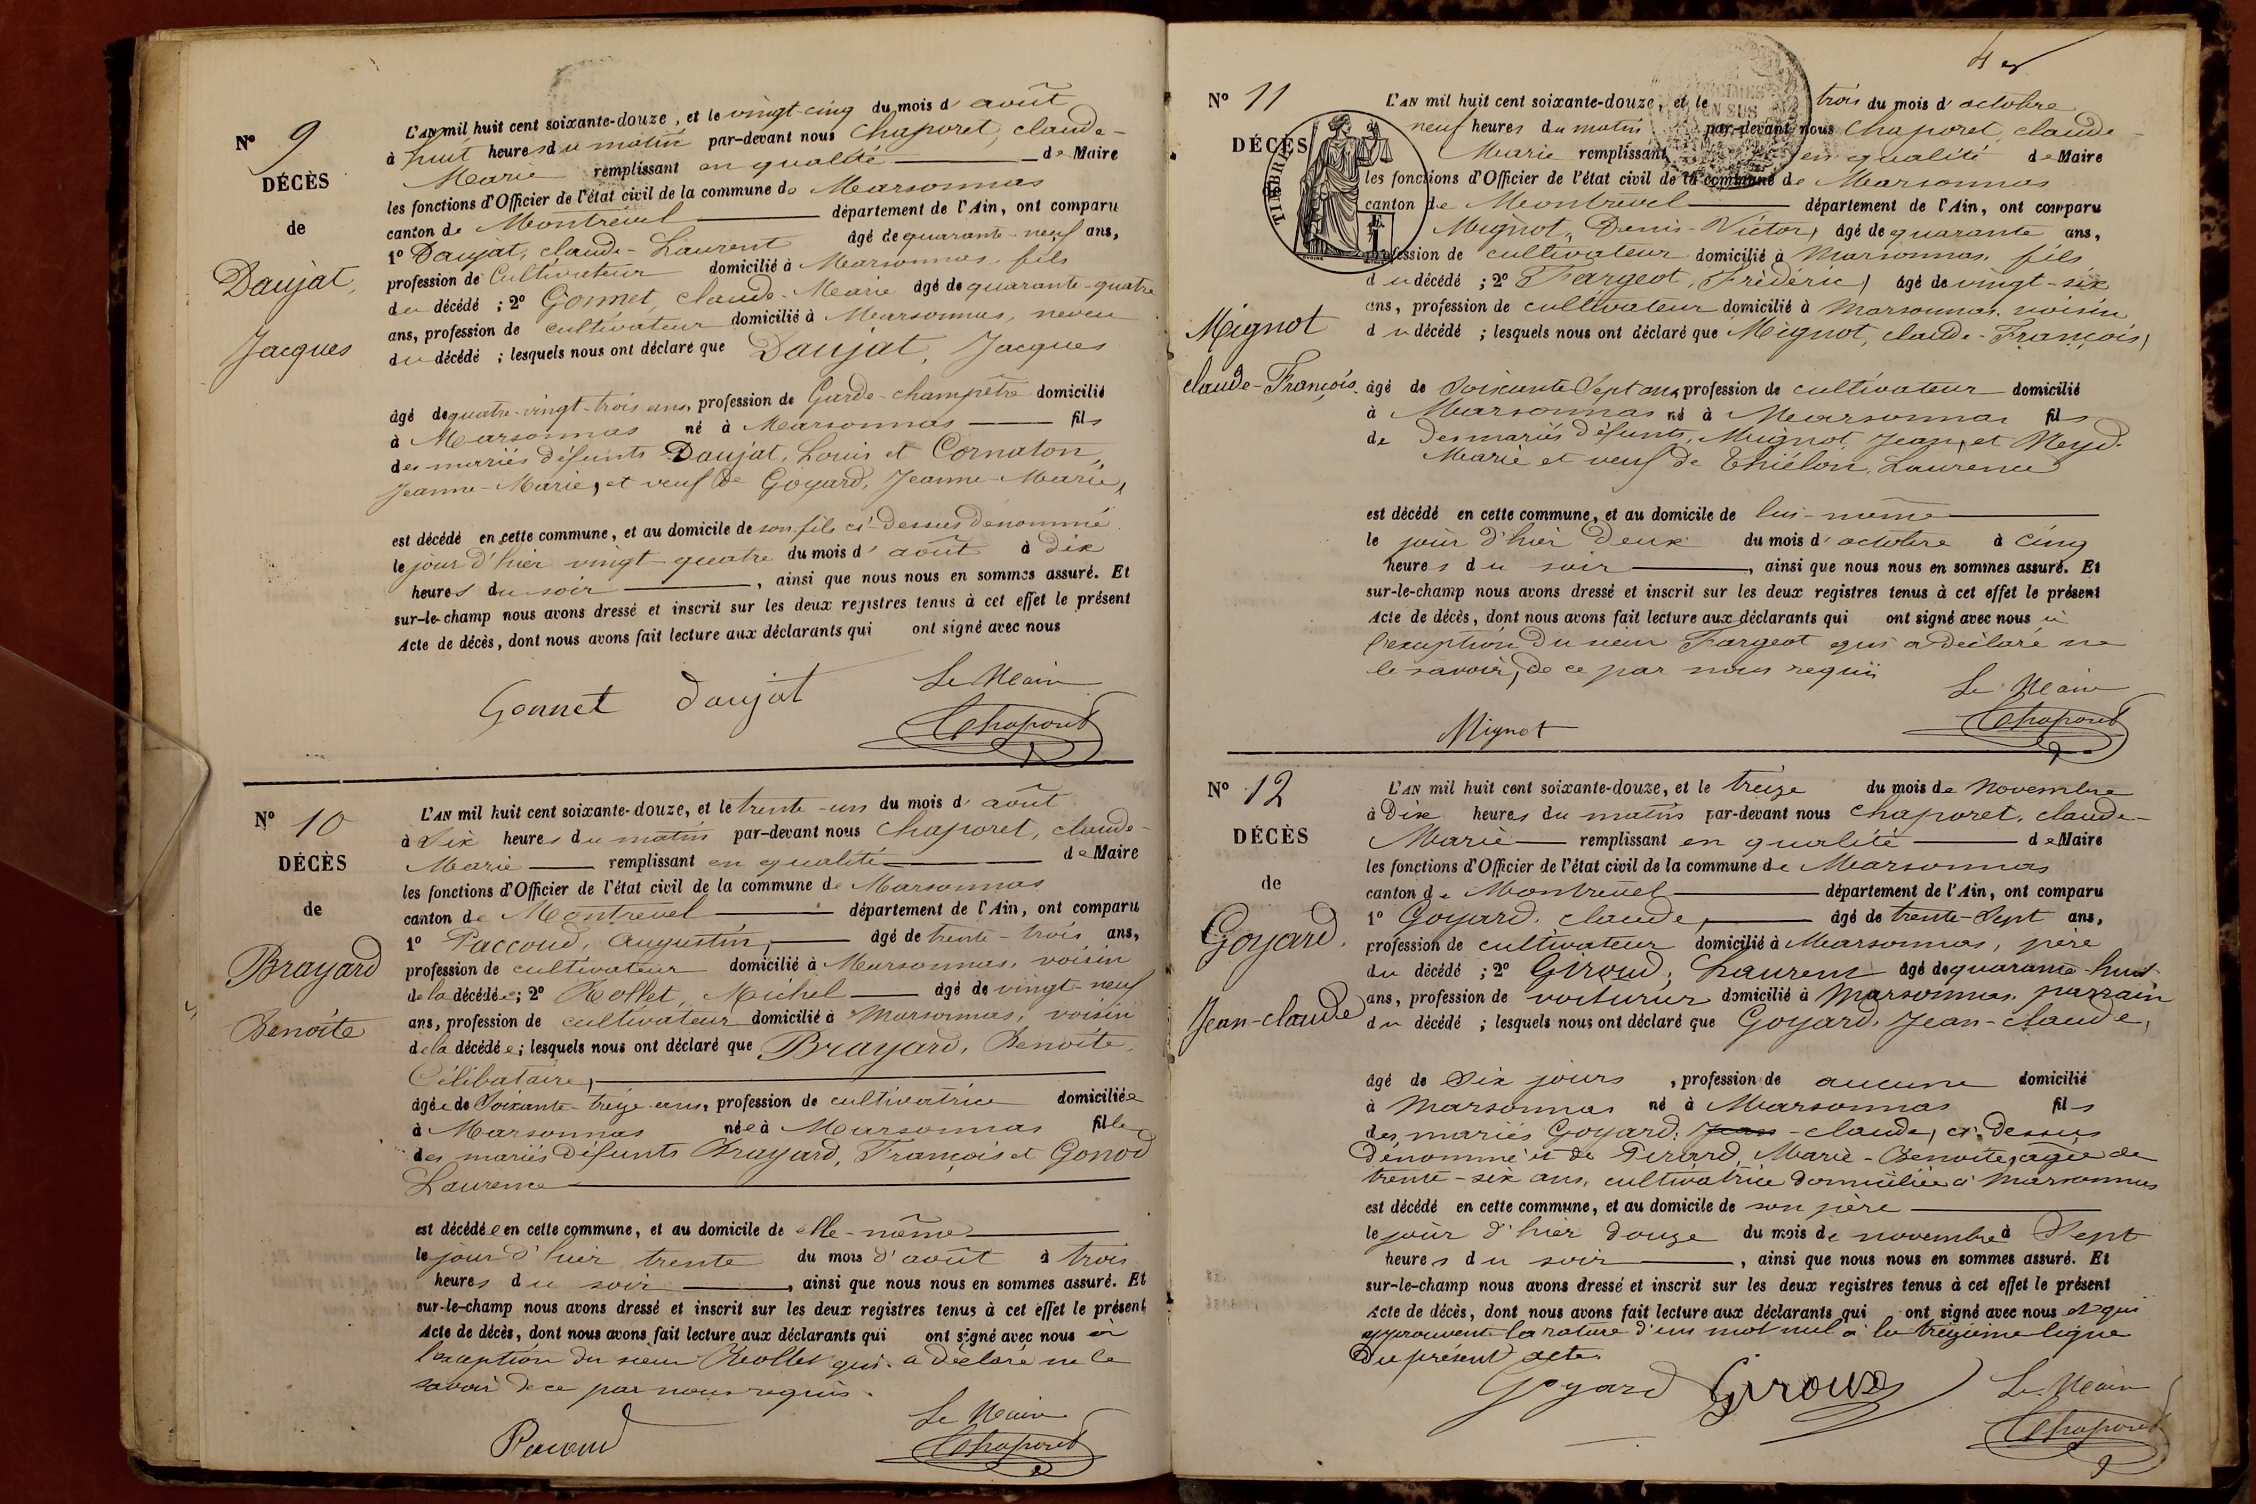 N° 9
DÉCÈS
de
Daujat,
Jacques
L'AN mil huit cent soixante-douze, et le vingt-cinq du mois d'août
à huit heures du matin par-devant nous Chaporet, claude-
Marie remplissant en qualité de Maire
les fonctions d'Officier de l'état civil de la commune de Marsonnas
canton de Montrevel département de l'Ain, ont comparu
1° Daujat, claude-Laurent âgé de quarante-neuf ans,
profession de Cultivateur domicilié à Marsonnas, fils
du décédé ; 2° Gonnet, claude-Marie âgé de quarante-quatre
ans, profession de cultivateur domicilié à Marsonnas, neveu
du décédé ; lesquels nous ont déclaré que Daujat, Jacques
âgé de quatre-vingt-trois ans, profession de Garde-champêtre domicilié
à Marsonnas né à Marsonnas fils
des mariés défunts Daujat, Louis et Cornaton,
Jeanne-Marie, et veuf de Goyard, Jeanne-Marie,
est décédé en cette commune, et au domicile de son fils ci-dessus dénommé
le jour d'hier vingt-quatre du mois d'août à dix
heures du soir , ainsi que nous nous en sommes assuré. Et
sur-le-champ nous avons dressé et inscrit sur les deux registres tenus à cet effet le présent
Acte de décès, dont nous avons fait lecture aux déclarants qui ont signé avec nous
Gonnet Daujat Le Maire
Chaporet
N° 10
DÉCÈS
de
Brayard
Benoite
L'AN mil huit cent soixante-douze, et le trente-un du mois d'août
à Dix heures du matin par-devant nous Chaporet, claude-
Marie remplissant en qualité de Maire
les fonctions d'Officier de l'état civil de la commune de Marsonnas
canton de Montrevel département de l'Ain, ont comparu
1° Paccoud, Augustin, âgé de trente-trois ans,
profession de cultivateur domicilié à Marsonnas, voisin
de la décédée ; 2° Rollet, Michel âgé de vingt-neuf
ans, profession de cultivateur domicilié à Marsonnas, voisin
de la décédée ; lesquels nous ont déclaré que Brayard, Benoite,
Célibataire,
âgée de Soixante-treize ans, profession de cultivatrice domiciliée
à Marsonnas née à Marsonnas fille
des mariés défunts Brayard, François et Gonod
Laurence
est décédée en cette commune, et au domicile de elle-même
le jour d'hier trente du mois d'août à trois
heures du soir , ainsi que nous nous en sommes assuré. Et
sur-le-champ nous avons dressé et inscrit sur les deux registres tenus à cet effet le présent
Acte de décès, dont nous avons fait lecture aux déclarants qui ont signé avec nous à
l'exception du sieur Rollet qui a déclaré ne le
savoir de ce par nous requis.
Pacoud Le Maire
Chaporet
N° 11
DÉCÈS
TIMBRE
Mignot
claude-François.
L'AN mil huit cent soixante-douze, et le trois du mois d'octobre
neuf heures du matin par-devant nous Chaporet, claude-
Marie remplissant en qualité de Maire
les fonctions d'Officier de l'état civil de la commune de Marsonnas
canton de Montrevel département de l'Ain, ont comparu
Mignot, Denis-Victor, âgé de quarante ans,
profession de cultivateur domicilié à Marsonnas, fils
du décédé ; 2° Fargeot, Frédéric, âgé de vingt-six
ans, profession de cultivateur domicilié à Marsonnas, voisin
du décédé ; lesquels nous ont déclaré que Mignot, claude-François,
âgé de Soixante Sept ans, profession de cultivateur domicilié
à Marsonnas né à Marsonnas fils
de Des mariés défunts, Mignot Jean, et Neyd
Marie et veuf de Thiélon, Laurence
est décédé en cette commune, et au domicile de lui-même
le jour d'hier Deux du mois d'octobre à cinq
heures du soir , ainsi que nous nous en sommes assuré. Et
sur-le-champ nous avons dressé et inscrit sur les deux registres tenus à cet effet le présent
Acte de décès, dont nous avons fait lecture aux déclarants qui ont signé avec nous à
l'exception du sieur Fargeot qui a déclaré ne
le savoir, de ce par nous requis
Mignot Le Maire
Chaporet
N° 12
DÉCÈS
de
Goyard,
Jean-claude
L'AN mil huit cent soixante-douze, et le treize du mois de Novembre
à Dix heures du matin par-devant nous Chaporet, claude-
Marie remplissant en qualité de Maire
les fonctions d'Officier de l'état civil de la commune de Marsonnas
canton de Montrevel département de l'Ain, ont comparu
1° Goyard, claude, âgé de trente-Sept ans,
profession de cultivateur domicilié à Marsonnas, père
du décédé ; 2° Giroud, Laurent âgé de quarante-huit
ans, profession de voiturier domicilié à Marsonnas, parrain
du décédé ; lesquels nous ont déclaré que Goyard, Jean-claude,
âgé de Dix jours , profession de aucune domicilié
à Marsonnas né à Marsonnas fils
des mariés Goyard, Jean-claude, ci-Dessus
Dénommé et de Perard, Marie-Benoite, agée de
trente-six ans, cultivatrice domiciliée à Marsonnas
est décédé en cette commune, et au domicile de son père
le jour d'hier douze du mois de novembre à Sept
heures du soir , ainsi que nous nous en sommes assuré. Et
sur-le-champ nous avons dressé et inscrit sur les deux registres tenus à cet effet le présent
Acte de décès, dont nous avons fait lecture aux déclarants qui ont signé avec nous et qui
approuvent la rature d'un mot nul à la treizième ligne
Du présent acte.
Goyard Giroud Le Maire
Chaporet